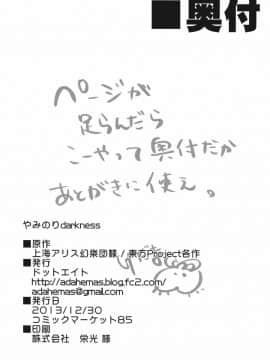 ■奥付
ページが
足らんだら
こーやって奥付だか
あとがきに使え。
やみのりdarkness
■原作
上海アリス幻樂団様 / 東方Project各作
■発行
ドットエイト
http://adahemas.blog.fc2.com/
adahemas@gmail.com
■発行日
2013/12/30
コミックマーケット85
■印刷
株式会社 栄光 様